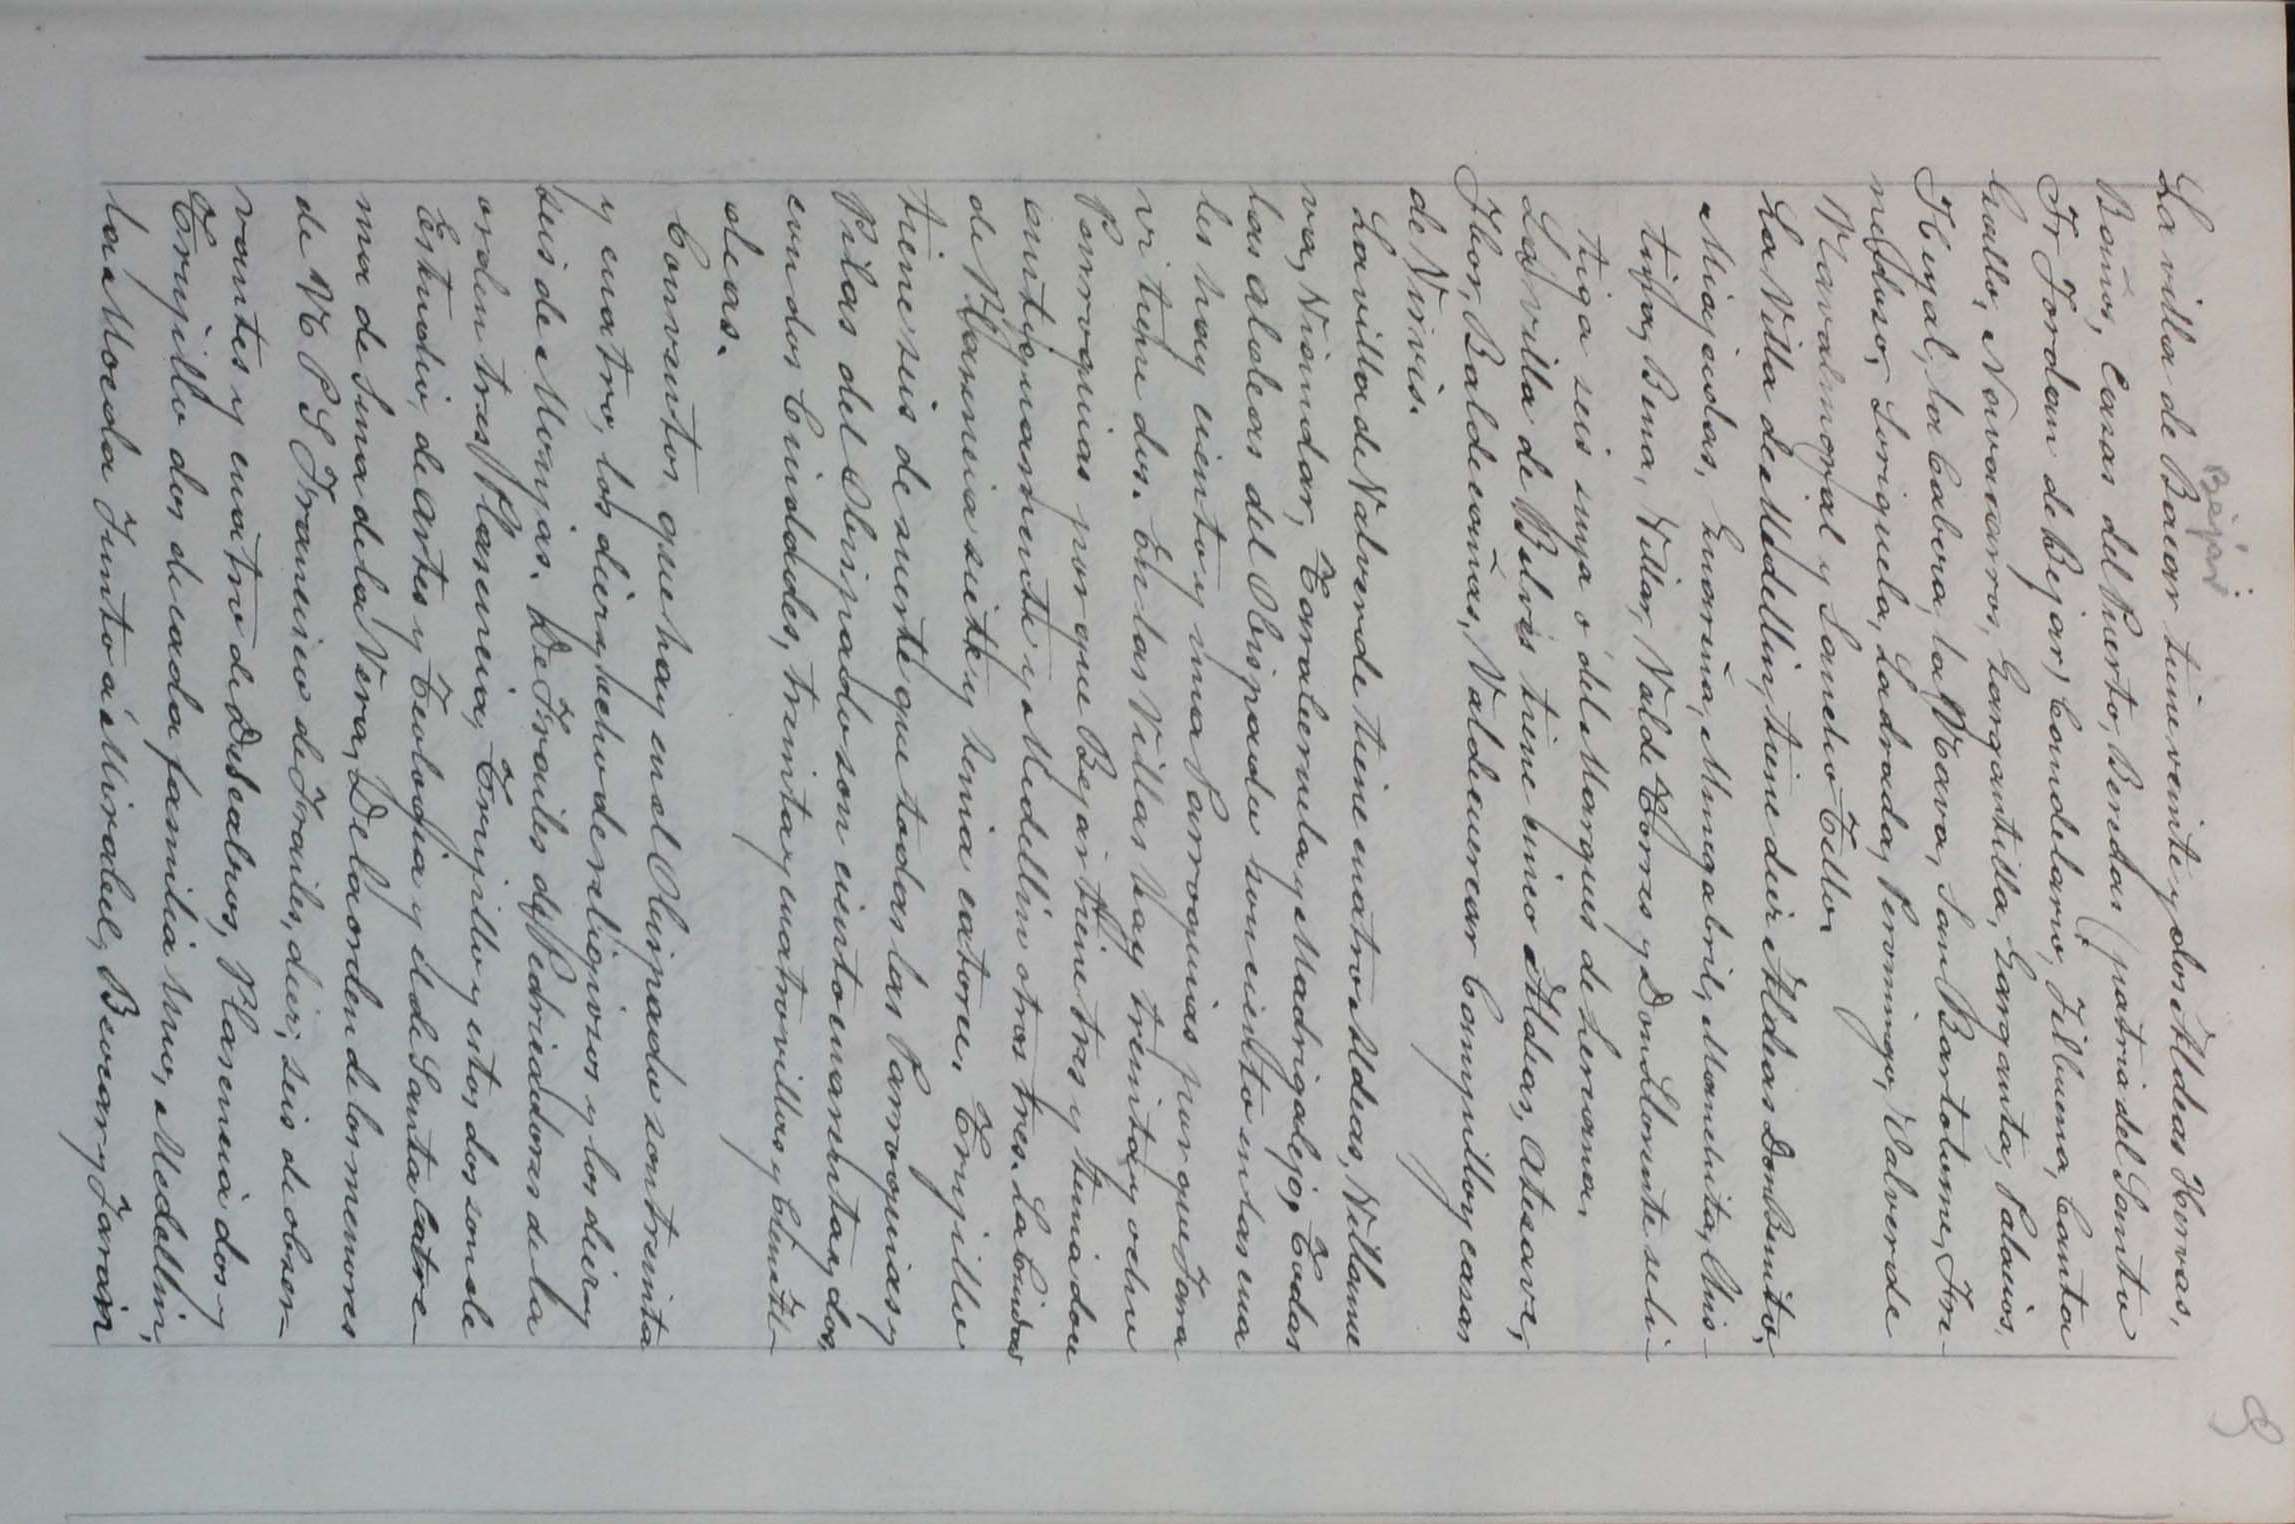 Béjar
8
La villa de Bacar tiene veinte y dos Aldeas Hervas,
Baños, Casas del Puerto, Bendas (patria del Santo
Fr Jordan de Bejar, Candelario, Fresbuena, Canta
Gallo, Navacarros, Gargantilla, Garganta, Palacios,
Regal, la Cabera, la Nava, San Bartolome, Fre-
medoso, Soriguela, Ladrada, Peromingo, Valverde
Navalmogral y Sancho Tello.
La Villa de Medellin, tiene dier Aldeas Don Benito,
Miajadas, Guareña, Mengabril, Manchita, Cris-
tina, Bena, Villar, Valde Torres y Don Llorente se li-
tiga seis suya ó del Marques de Leriana.
La villa de Belvis tiene cinco Aldeas, Ateseave,
Ibor, Baldecañas, Valdecuercar Campillo y casas
de Virvis.
La villa de Valverde tiene cuatro Aldeas, Villanue
va, Viandar, Taraleruela y Madrigalejo. Todas
las aldeas del Obispado son ciento en las cua
les hay ciento y una Parroquias porque Jara
vi tiene dos. En las Villas hay treinta y ocho
Parroquias porque Bejar tiene tres y tenia doce
antiguamente y Medellin otras tres. La Ciudad
de Plasencia siete y tenia catorce. Trujillo
tiene seis de suerte que todas las Parroquias y
Pilas del Obispado son ciento cuarenta y dos,
con dos Ciudades, treinta y cuatro villas y Cien Al-
deas.
Conventos que hay en el Obispado son treinta
y cuatro, los dier y ocho de religiosos y los dier y
seis de Monjas. De Frailes de Predicadores de la
orden tres Plasencia, Trujillo y estos, dos son de
Estudio, de Artes y Teologia y el de Santa Catre-
ma de Sena de la Vera, De la orden de los menores
de N P S Francisco de Frailes, dier; seis de obser-
vantes y cuatro de Descalros, Plasencia dos y
Trujillo dos de cada familia uno, Medellin,
la Moeda Junto á Mirabel, Bearar y Jarain